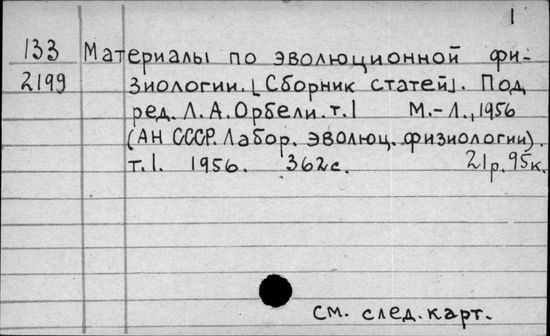 1
133 Материалы по эволюционной фи-
2199 зиологии. [Сборник статей]. Под
ред. Л.А.Орбели. т.1 М.-Л., 1956
(АН СССР. Лабор. эволюц. физиологии).
т.1. 1956. 362с. 21р.95к.
см. след. карт.